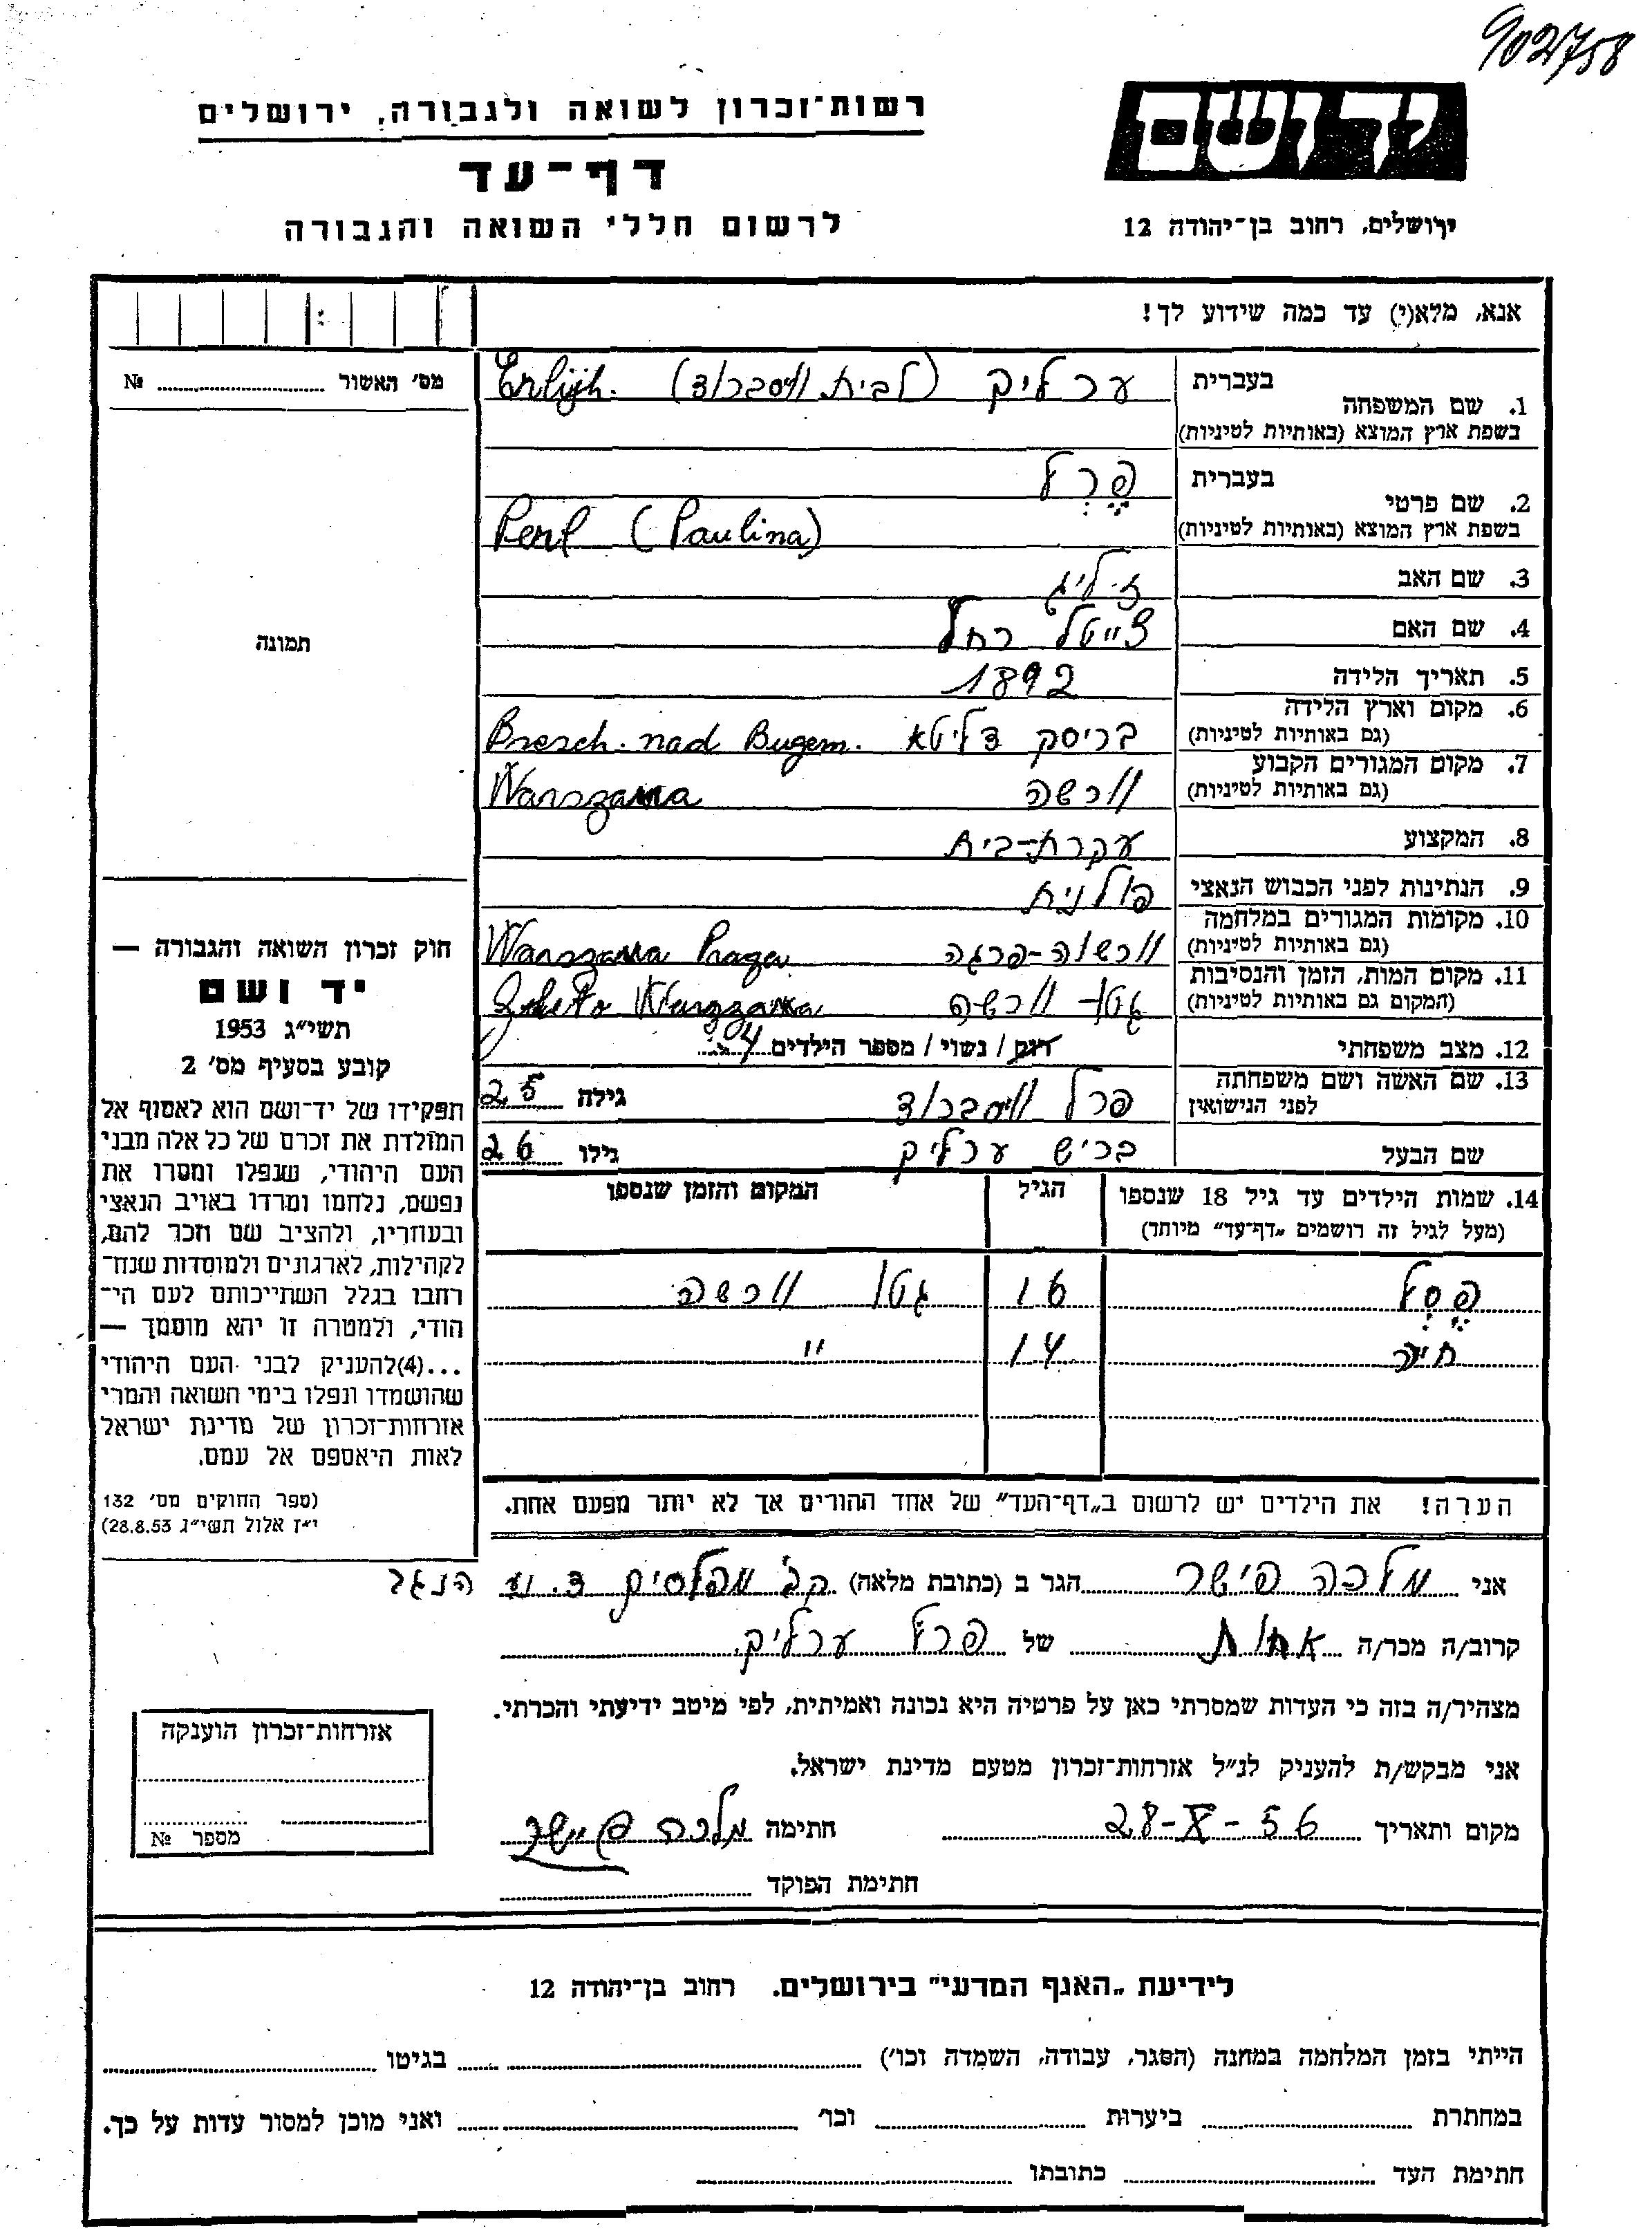 902758
יד ושם
רשות־זכרון לשואה ולגבורה, ירושלים
דף־עד
לרשום חללי השואה והגבורה
ירושלים, רחוב בן־יהודה 12
אנא, מלא(י) עד כמה שידוע לך!
מס׳ האשור № 
1. שם המשפחה
בעברית ערליק (לבית ווסברוד) Erlijh.
בשפת ארץ המוצא (באותיות לטיניות)
2. שם פרטי
בעברית פֶּרְל
בשפת ארץ המוצא (באותיות לטיניות) Perl (Paulina)
3. שם האב זליג
4. שם האם צייטל רחל
5. תאריך הלידה 1892
6. מקום וארץ הלידה
(גם באותיות לטיניות) בריסק דליטא Brzesch. nad Bugem.
7. מקום המגורים הקבוע
(גם באותיות לטיניות) וורשה Warszawa
8. המקצוע עקרת-בית
9. הנתינות לפני הכבוש הנאצי פולנית
10. מקומות המגורים במלחמה
(גם באותיות לטיניות) וורשה-פרגה Warszawa Praga
11. מקום המות, הזמן והנסיבות
(המקום גם באותיות לטיניות) גטו- וורשה Warszawa
12. מצב משפחתי רווק / נשוי / מספר הילדים 4
13. שם האשה ושם משפחתה
לפני הנישואין פרל גילה 25
שם הבעל בריש ערליק גילו 26
14. שמות הילדים עד גיל 18 שנספו הגיל המקום והזמן שנספו
(מעל לגיל זה רושמים „דף־עד״ מיוחד)
פֶּסְל 16 גטו וורשה
חיה 14 "
הערה! את הילדים יש לרשום ב„דף־העד״ של אחד ההורים אך לא יותר מפעם אחת.
תמונה
חוק זכרון השואה והגבורה —
יד ושם
תשי״ג 1953
קובע בסעיף מס׳ 2
תפקידו של יד־ושם הוא לאסוף אל
המולדת את זכרם של כל אלה מבני
העם היהודי, שנפלו ומסרו את
נפשם, נלחמו ומרדו באויב הנאצי
ובעוזריו, ולהציב שם וזכר להם,
לקהילות, לארגונים ולמוסדות שנח־
רבו בגלל השתייכותם לעם הי־
הודי, ולמטרה זו יהא מוסמך —
...(4)להעניק לבני העם היהודי
שהושמדו ונפלו בימי השואה והמרי
אזרחות־זכרון של מדינת ישראל
לאות היאספם אל עמם.
(ספר החוקים מס׳ 132
י״ז אלול תשי״ג 28.8.53)
אני מלכה פישר הגר ב (כתובת מלאה) קב׳ מפלסים ד. נע הנגב
קרוב/ה מכר/ה אחות של פרל ערליק.
מצהיר/ה בזה כי העדות שמסרתי כאן על פרטיה היא נכונה ואמיתית, לפי מיטב ידיעתי והכרתי.
אני מבקש/ת להעניק לנ״ל אזרחות־זכרון מטעם מדינת ישראל.
מקום ותאריך 28-X-56 חתימה מלכה פיישר
חתימת הפוקד
אזרחות־זכרון הוענקה
מספר №
לידיעת „האגף המדעי״ בירושלים. רחוב בן־יהודה 12
הייתי בזמן המלחמה במחנה (הסגר, עבודה, השמדה וכו׳) בגיטו
במחתרת ביערות וכו׳ ואני מוכן למסור עדות על כך.
חתימת העד כתובתו